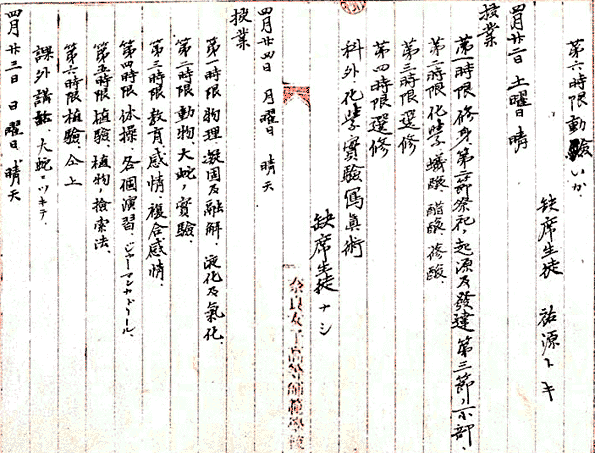 第六時限 動驗 いか、
缺席生徒 祐源トキ
四月廿二日 土曜日 晴
授業
第一時限 修身、第二部祭祀ノ起源及發達 第三節ノ
第二時限 化學 蟻酸 醋酸 蓚酸、
第三時限 選修
第四時限 選修
科外、化學實驗 寫眞術
缺席生徒ナシ
奈良女子高等師範學校
四月廿四日 月曜日 晴天
授業
第一時限 物理 凝固及融解、液化及氣化、
第二時限 動物 大蛇ノ實驗、
第三時限 教育 感情、複合感情、
第四時限 体操 各個演習、ジャーマンカドリール、
第五時限 植驗、植物ノ檢索法、
第六時限 植驗、仝上
課外講話、大蛇ニツキテ、
四月廿三日 日曜日 晴天